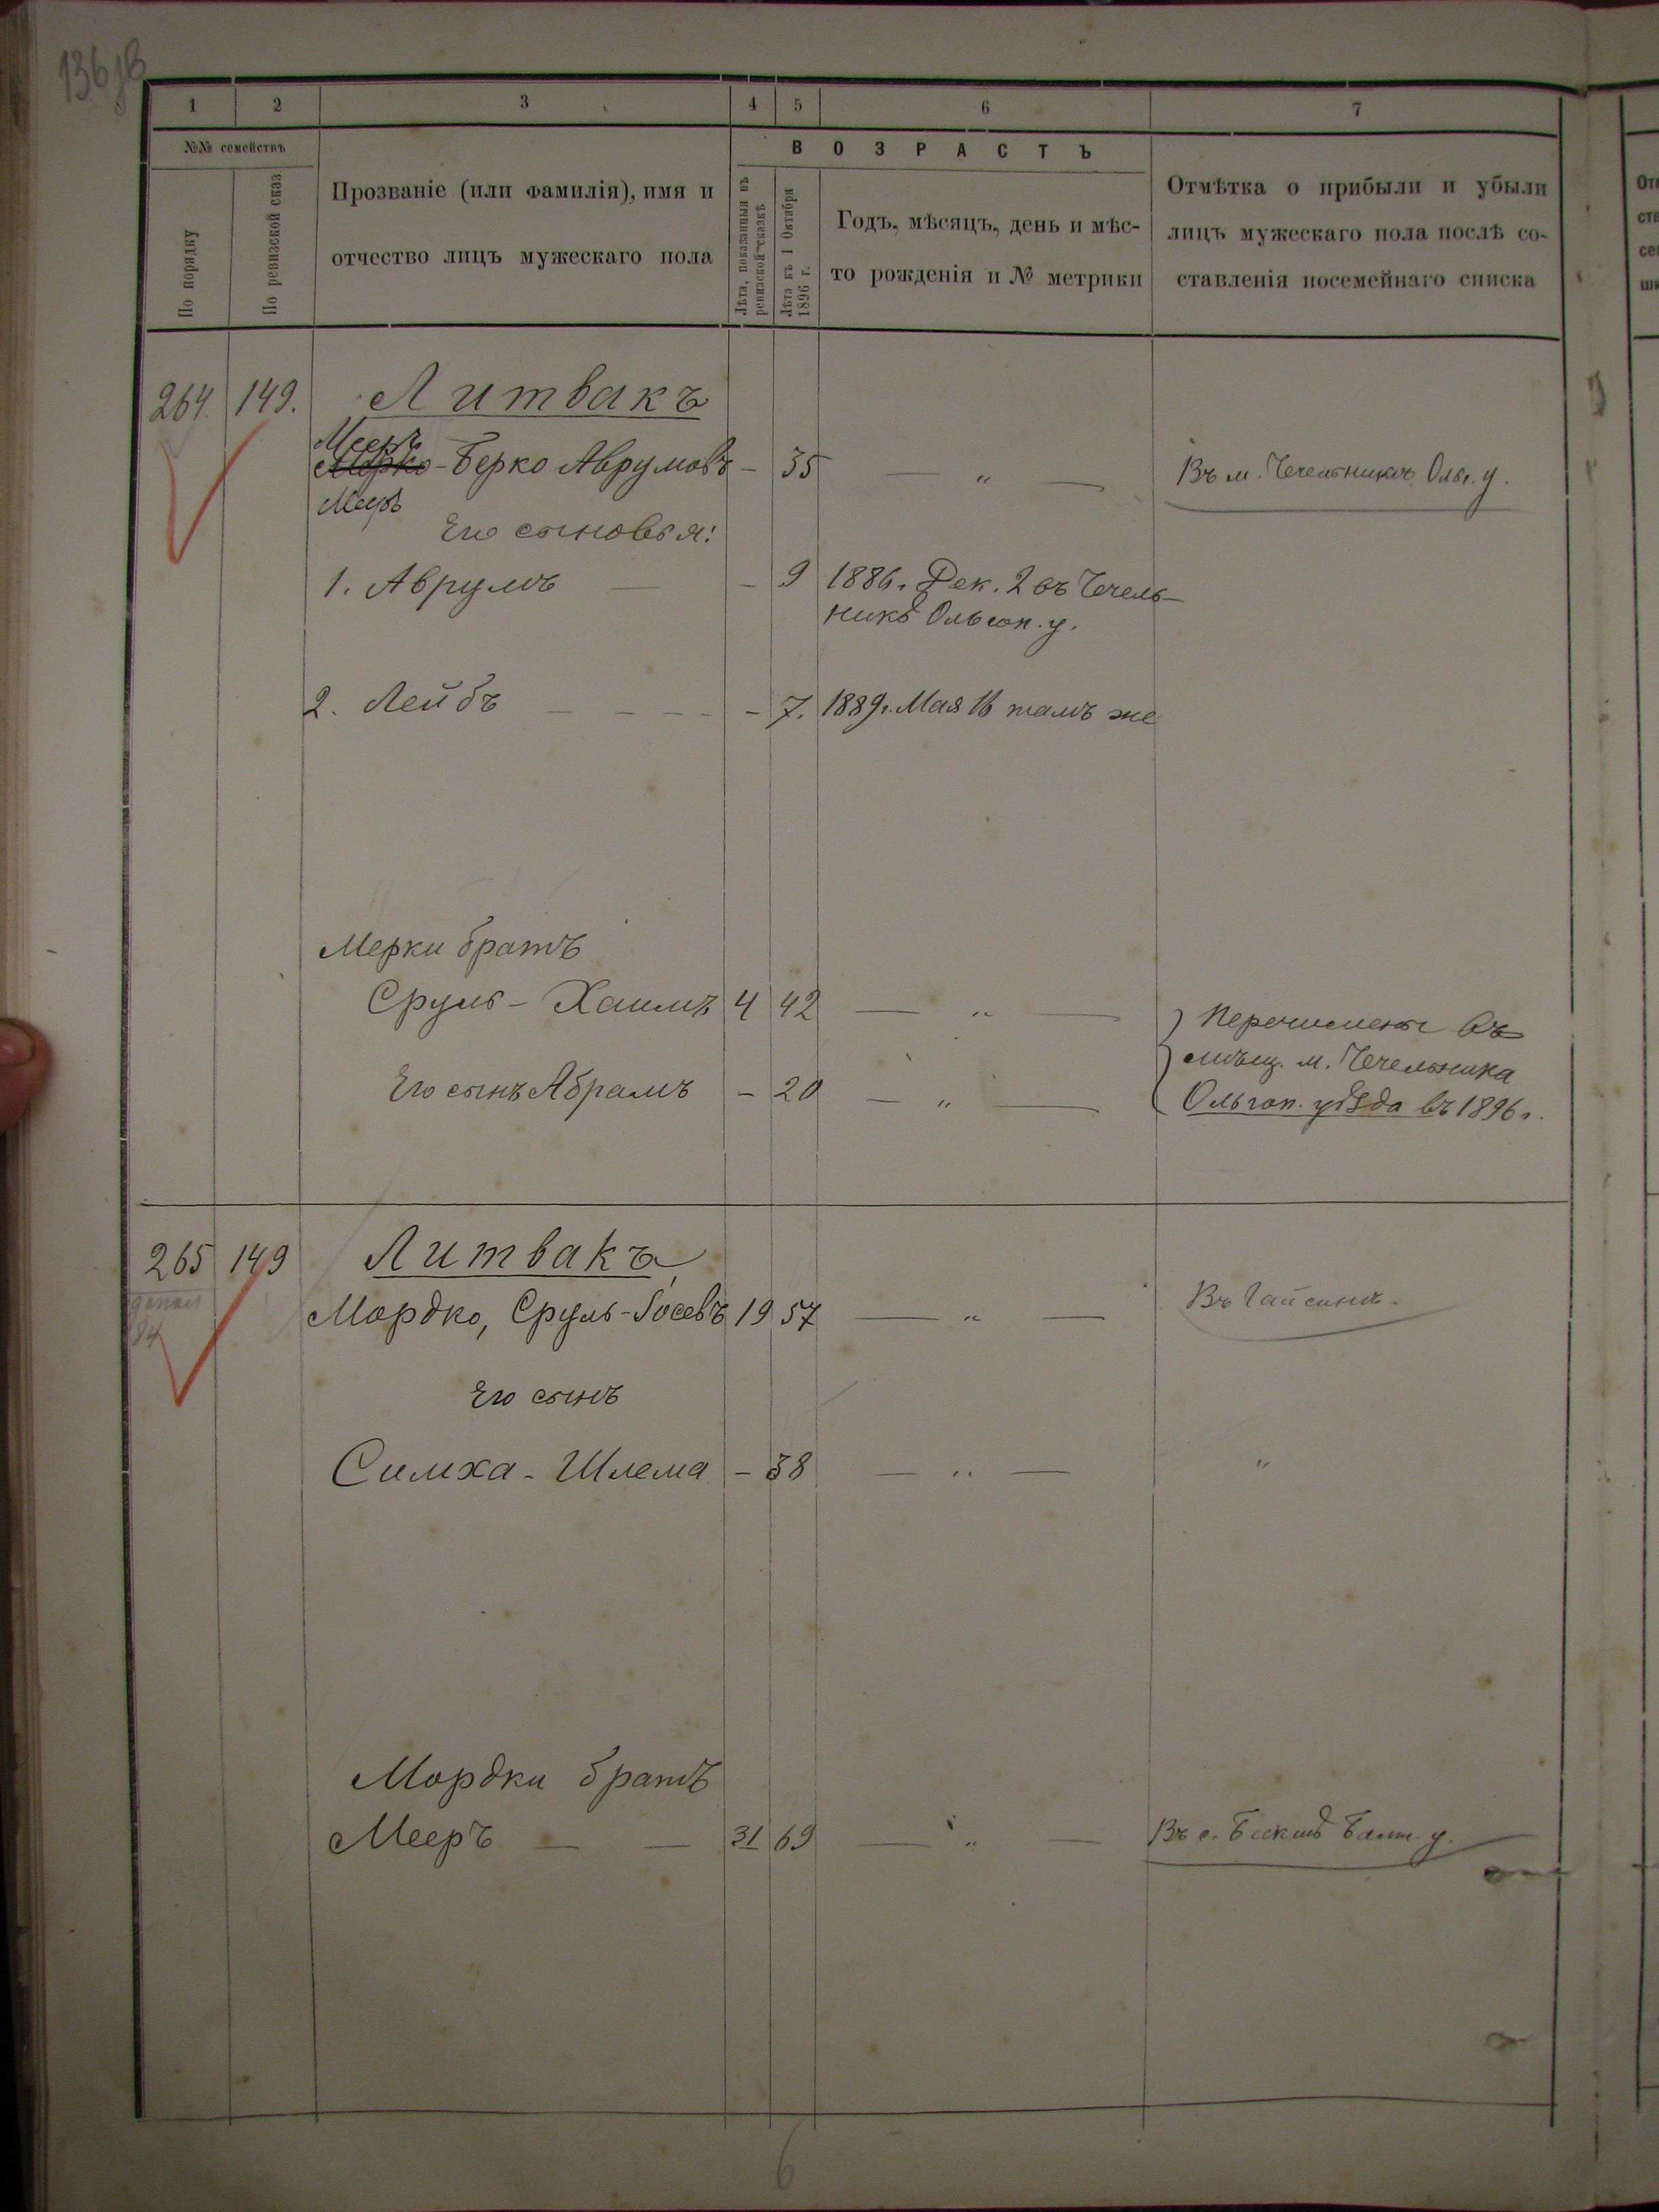 136 об
1 2 3 4 5 6 7
№№ семействъ
По порядку
По ревизской сказ
Прозваніе (или фамилія), имя и
отчество лицъ мужескаго пола
ВОЗРАСТЪ
Лѣта, показанныя въ
ревизской сказкѣ
Лѣта къ 1 Октября
1896 г.
Годъ, мѣсяцъ, день и мѣс-
то рожденія и № метрики
Отмѣтка о прибыли и убыли
лицъ мужескаго пола послѣ со-
ставленія посемейнаго списка
264. 149. Литвакъ
Мееръ
Мерко-Берко Аврумовъ - 35 — " — Въ м. Чечельникѣ Ольг. у.
Мееръ
Его сыновья:
1. Аврумъ — - 9 1886 г. Дек. 2 въ Чечель-
никѣ Ольгоп. у.
2. Лейбъ — - 7. 1889 г. Мая 16 тамъ же
Мерки братъ
Сруль - Хаимъ 4 42 — " —
Перечислены въ
мѣщ. м. Чечельника
Его сынъ Абрамъ - 20 — " —
Ольгоп. уѣзда въ 1896 г.
265 149 Литвакъ
Мордко, Сруль-Іосевъ 19 57 — " — Въ Гайсинѣ.
84
Его сынъ
Симха - Шлема - 38 — " — "
Мордки братъ
Мееръ — — 31 69 — " — Въ с. Бакшѣ Балт. у.
6